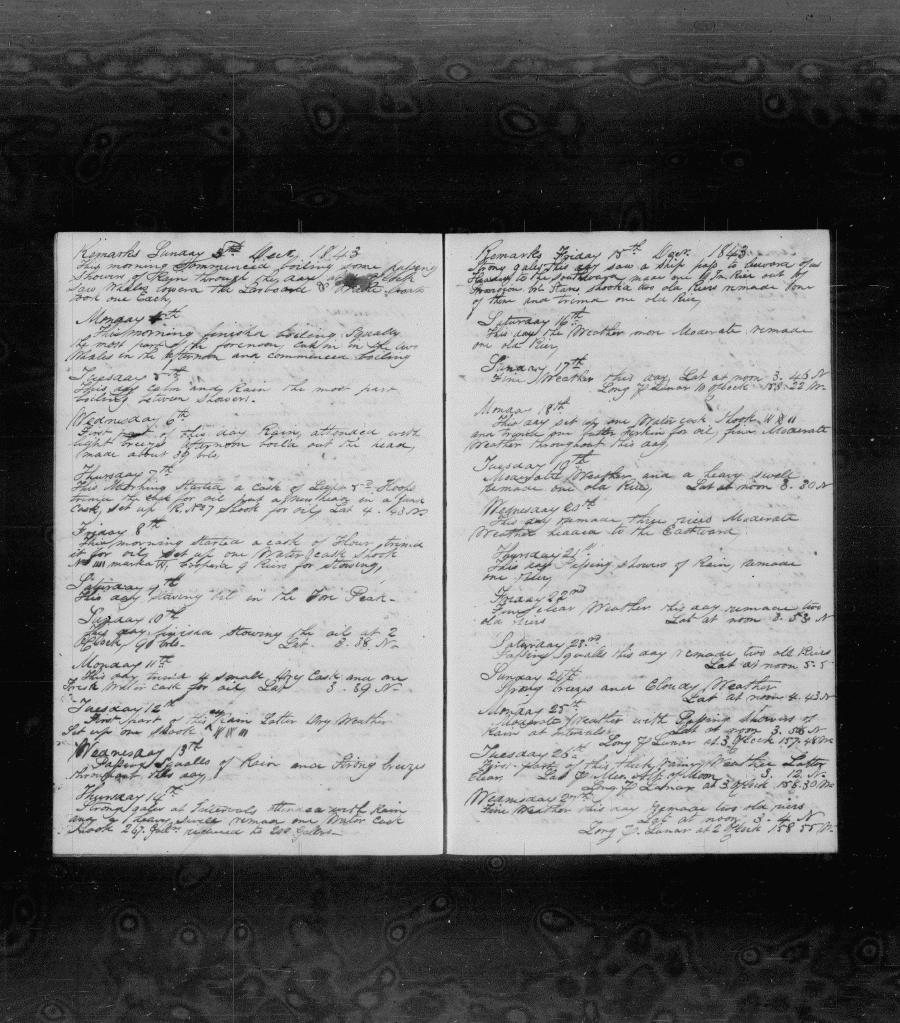 Remarks Sunday 3rd Decr, 1843
This morning Commenced boiling some passing
Showers of Rain through the day at
Saw Whales lowerd the Larboard & Boats
took one Each,
Monday 4th
This morning finishd boiling, Squally
the most part of the forenoon, cut in the two
Whales in the afternoon and commenced boiling
Tuesday 5th
This day calm and Rain the most part
boiling between Showers.
Wednesday 6th
First part of this day Rain, attended with
light breezes afternoon boild out the head,
made about 39 bbls
Thursday 7th
This Morning Started a cask of
for oil put a New head in a
Cask, Set up R. No 7 Shook for oil, Lat 4. 43 N.
Friday 8th
This morning started a cask of Flour, trimd
it for oil, Set up one Water Cask Shook
markd W, 9 Riers for Stowing,
Saturday 9th
This day Stowing bit in the Fore Peak.
Sunday 10th
This day finishd Stowing the oil at 2
O Clock, 90 bbls. Lat. 3. 38 N.
Monday 11th
This day trimd 4 small Casks and one
Fresh Water Cask for oil, Lat 3. 39 N.
Tuesday 12th
First part of this day Rain Latter Dry Weather
Set up one Shook
Wednesday 13th
Passing Squalls of Rain and Strong breeze
throughout this day
Thursday 14th
Strong gales at Intervals attended with Rain
and a heavy Swell remade one Water Cask
Shook 267 Galls. reduced to 200 Gallons.
Remarks Friday 15th Decr. 1843
Strong gales this day saw a ship pass to leward of us
Steering to the Southward, made one 9 In Rier out of
Provision bbl Staves shookd two old Riers remade one
of them and trimd one old Rier,
Saturday 16th
This day the Weather more Moderate, remade
one old Rier,
Sunday 17th
Fine Weather this day, Lat at noon 3. 43 N
Long P Lunar 10 O Clock 158. 22 W.
Monday 18th
This day set up one Water cask Shook
and trimd one for oil, fine Moderate
Weather throughout this day,
Tuesday 19th
Moderate Weather and a heavy Swell
remade one old Rier, Lat at noon 3. 30 N
Wednesday 20th
This day remade three riers Moderate
Weather headed to the Eastward,
Thursday 21st
This day Passing showers of Rain, remade
one rier,
Friday 22nd
Fine clear Weather this day remade two
old riers Lat at noon 3. 53 N
Saturday 23rd
Passing Squalls this day remade two old Riers
Lat at noon 5. 5
Sunday 24th
Strong breezes and Cloudy Weather
Lat at noon 4. 43 N
Monday 25th
Moderate Weather with Passing Showers of
Rain at Intervals Lat at noon 3. 56 N
Long P Lunar at 3 O Clock 157. 48 W.
Tuesday 26th
First part of this thick rainy Weather Latter
Clear, Lat P Mer. Alt. of Moon 3. 12 N.
Long P Lunar at 3 O Clock 158. 30 W.
Wednesday 27th
Fine Weather this day remade two old riers
Lat at noon 3. 4 N
Long P. Lunar at 2 O Clock 158 55 W.